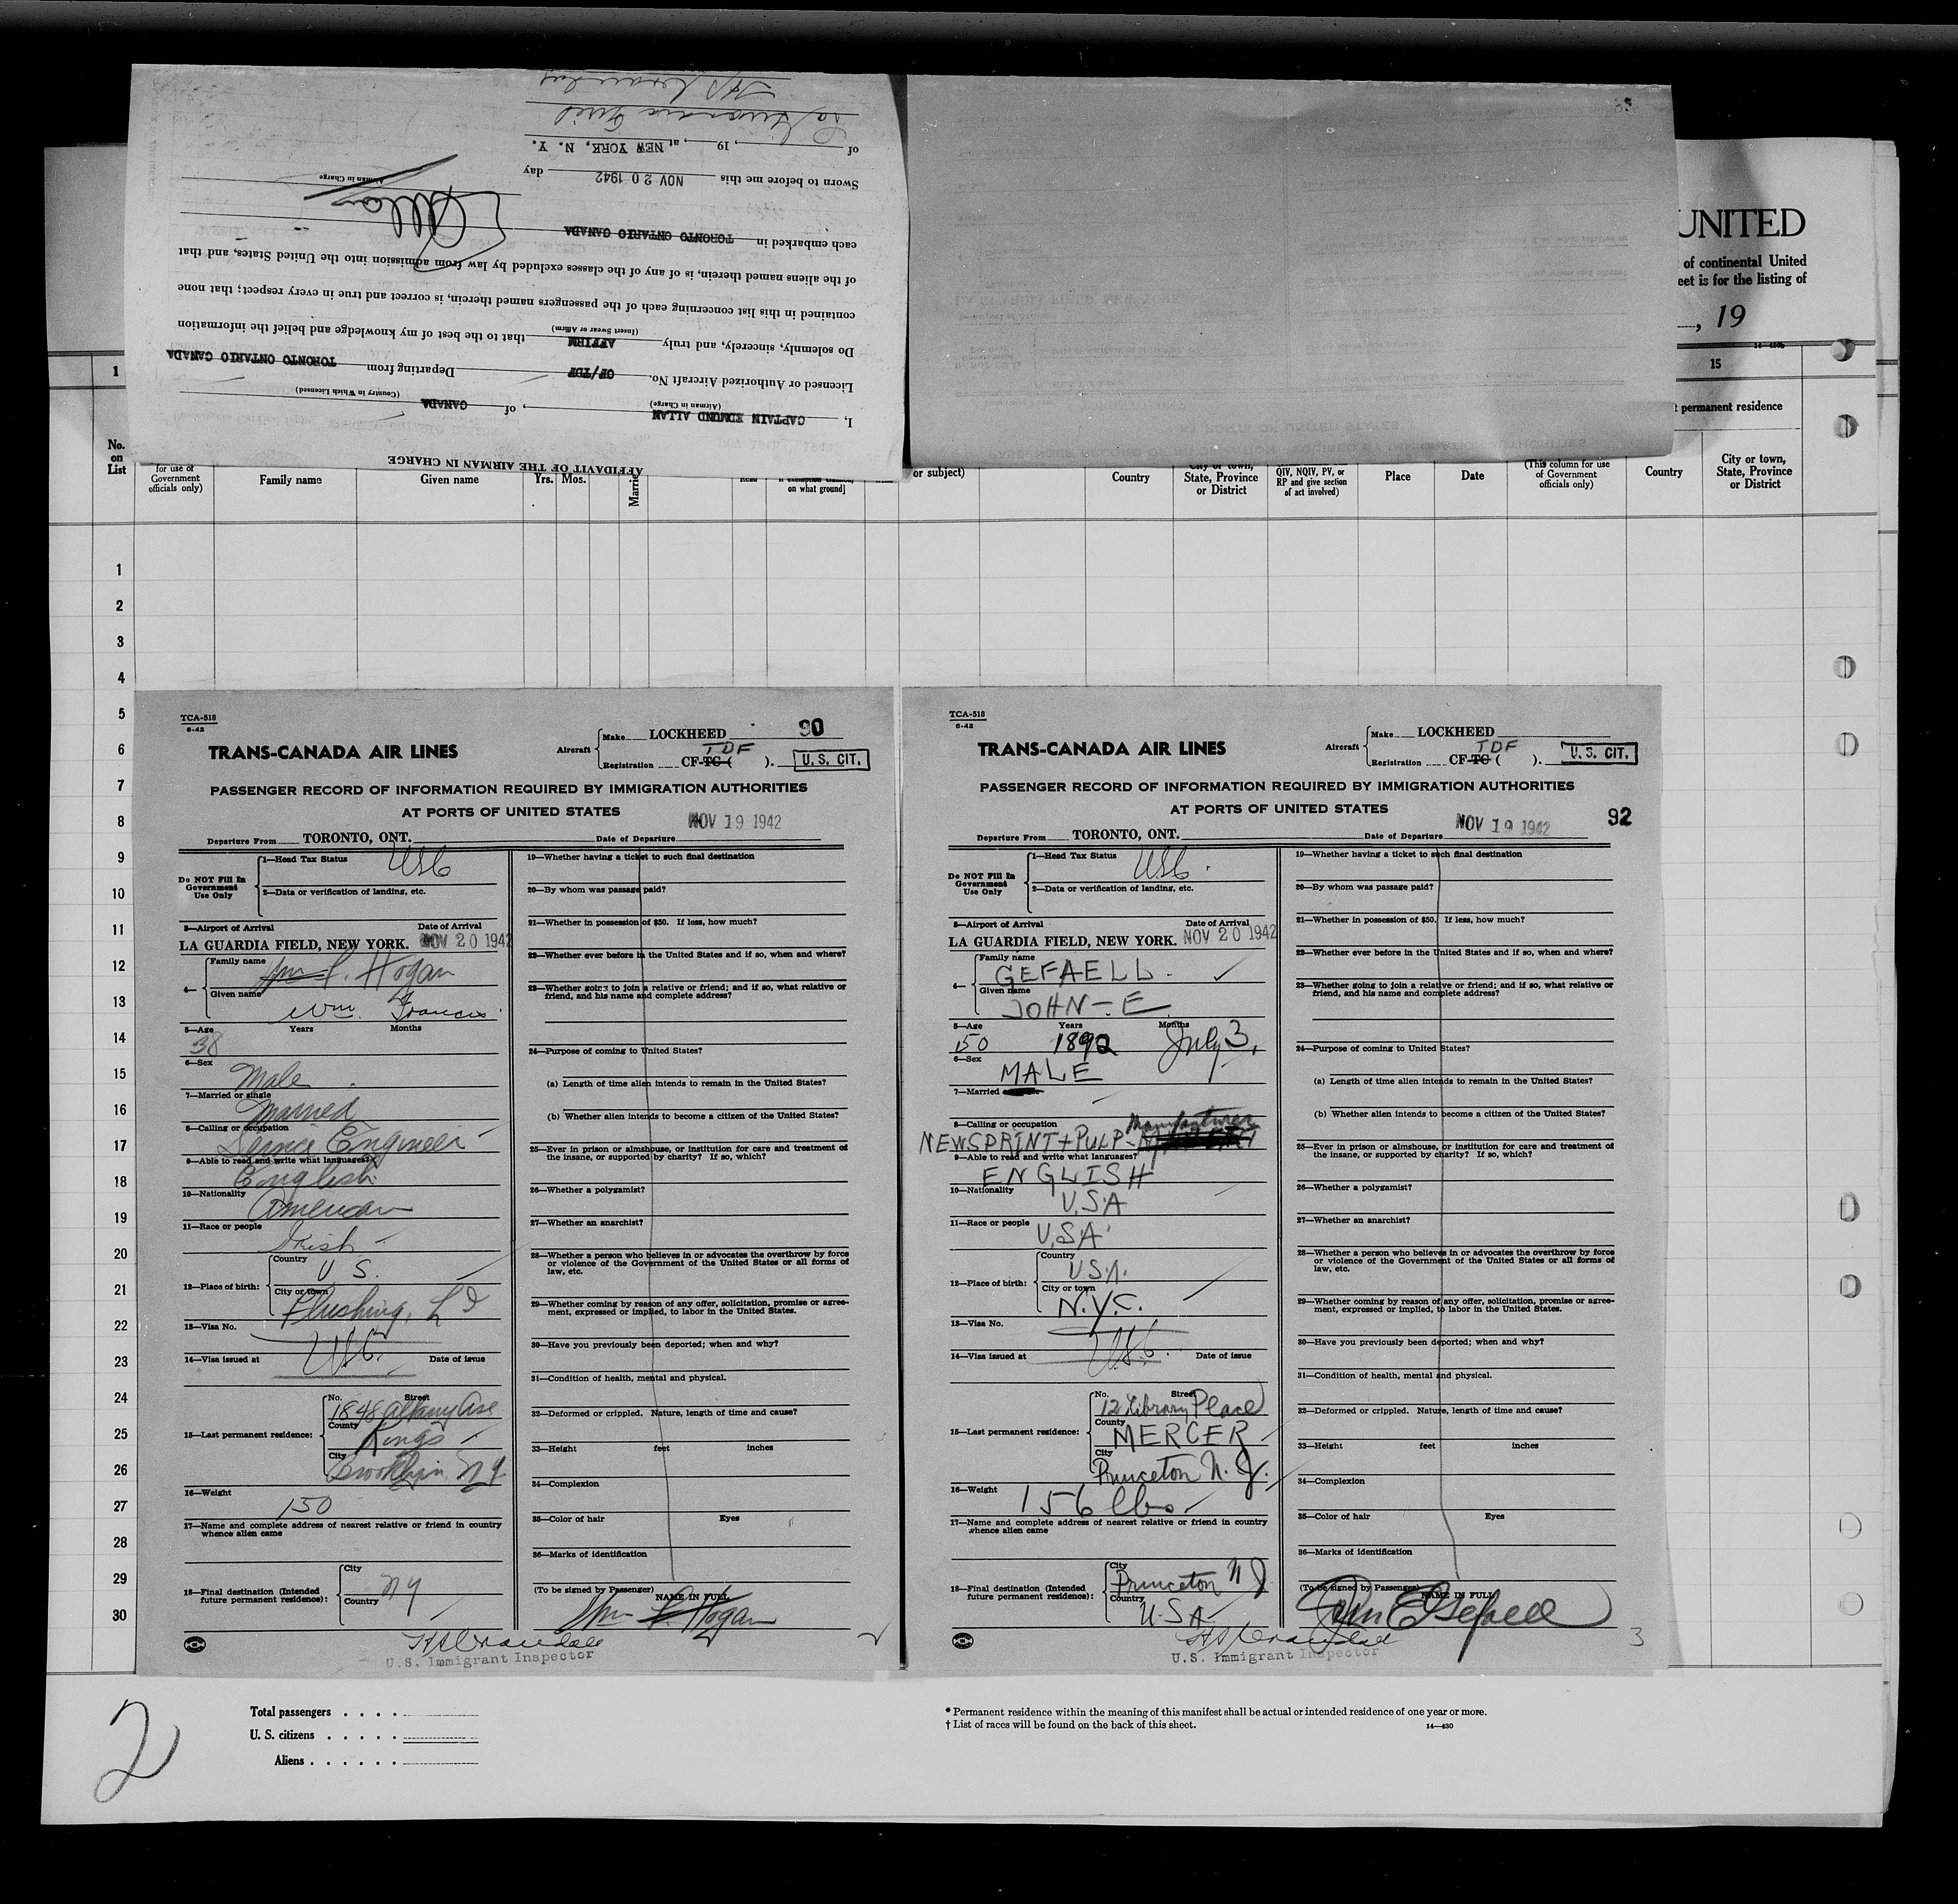 AFFIDAVIT OF THE AIRMAN IN CHARGE
I, CAPTAIN EDMUND ALLAN, of CANADA
(Airman in Charge) (Country in Which Licensed)
Licensed or Authorized Aircraft No. CF/TDF Departing from TORONTO ONTARIO CANADA
Do solemnly, sincerely, and truly AFFIRM that to the best of my knowledge and belief the information
(Insert Swear or Affirm)
contained in this list concerning each of the passengers named therein, is correct and true in every respect; that none
of the aliens named therein, is of any of the classes excluded by law from admission into the United States, and that
each embarked in TORONTO ONTARIO CANADA
E Allan
Airman in Charge
Sworn to before me this NOV 20 1942 day
of , 19 , at NEW YORK, N. Y.
La Guardia Field
UNITED
of continental United
eet is for the listing of
, 19
1
15
permanent residence
No.
on
List
for use of
Government
officials only)
Family name
Given name
Yrs. Mos.
on what ground]
or subject)
Country
City or town,
State, Province
or District
QIV, NQIV, PV, or
RP and give section
of act involved)
Place
Date
(This column for use
of Government
officials only)
Country
City or town,
State, Province
or District
1
2
3
4
5
6
7
8
9
10
11
12
13
14
15
16
17
18
19
20
21
22
23
24
25
26
27
28
29
30
TCA-518
6-42
TRANS-CANADA AIR LINES
Aircraft
Make LOCKHEED
90
TDF
Registration CF-TC ( ).
U. S. CIT.
PASSENGER RECORD OF INFORMATION REQUIRED BY IMMIGRATION AUTHORITIES
AT PORTS OF UNITED STATES
Departure From TORONTO, ONT. Date of Departure NOV 19 1942
Do NOT Fill In
Government
Use Only
1—Head Tax Status USC
2—Data or verification of landing, etc.
3—Airport of Arrival Date of Arrival
LA GUARDIA FIELD, NEW YORK. NOV 20 1942
4—
Family name Wm F. Hogan
Given name Wm. Francis
5—Age Years Months
38
6—Sex
Male
7—Married or single
Married
8—Calling or occupation
Service Engineer
9—Able to read and write what languages?
English
10—Nationality
American
11—Race or people
Irish
12—Place of birth:
Country
U S.
City or town
Flushing, L I
13—Visa No.
USC
14—Visa issued at Date of issue
15—Last permanent residence:
No. Street
1848 Albany Ave
County
Kings
City
Brooklyn, NY
16—Weight
150
17—Name and complete address of nearest relative or friend in country
whence alien came
18—Final destination (Intended
future permanent residence):
City
NY
Country
19—Whether having a ticket to such final destination
20—By whom was passage paid?
21—Whether in possession of $50. If less, how much?
22—Whether ever before in the United States and if so, when and where?
23—Whether going to join a relative or friend; and if so, what relative or
friend, and his name and complete address?
24—Purpose of coming to United States?
(a) Length of time alien intends to remain in the United States?
(b) Whether alien intends to become a citizen of the United States?
25—Ever in prison or almshouse, or institution for care and treatment of
the insane, or supported by charity? If so, which?
26—Whether a polygamist?
27—Whether an anarchist?
28—Whether a person who believes in or advocates the overthrow by force
or violence of the Government of the United States or all forms of
law, etc.
29—Whether coming by reason of any offer, solicitation, promise or agree-
ment, expressed or implied, to labor in the United States.
30—Have you previously been deported; when and why?
31—Condition of health, mental and physical.
32—Deformed or crippled. Nature, length of time and cause?
33—Height feet inches
34—Complexion
35—Color of hair Eyes
36—Marks of identification
(To be signed by Passenger) NAME IN FULL
Wm F. Hogan
2
H S Crandall
U.S. Immigrant Inspector
TCA-518
6-42
TRANS-CANADA AIR LINES
Aircraft
Make LOCKHEED
TDF
Registration CF-TC ( ).
U. S. CIT.
PASSENGER RECORD OF INFORMATION REQUIRED BY IMMIGRATION AUTHORITIES
AT PORTS OF UNITED STATES
92
Departure From TORONTO, ONT. Date of Departure NOV 19 1942
Do NOT Fill In
Government
Use Only
1—Head Tax Status USC
2—Data or verification of landing, etc.
3—Airport of Arrival Date of Arrival
LA GUARDIA FIELD, NEW YORK. NOV 20 1942
4—
Family name
GEFAELL
Given name
JOHN-E
5—Age Years Months
50 1892 July 3,
6—Sex
MALE
7—Married
8—Calling or occupation Manufacturer
NEWSPRINT + PULP-
9—Able to read and write what languages?
ENGLISH
10—Nationality
U.S.A
11—Race or people
U.S.A
12—Place of birth:
Country
U.S.A.
City or town
N.Y.C.
13—Visa No.
U.S.C.
14—Visa issued at Date of issue
15—Last permanent residence:
No. Street
12 Library Place
County
MERCER
City
Princeton N. J.
16—Weight
156 lbs
17—Name and complete address of nearest relative or friend in country
whence alien came
18—Final destination (Intended
future permanent residence):
City
Princeton N J
Country
U.S.A
19—Whether having a ticket to such final destination
20—By whom was passage paid?
21—Whether in possession of $50. If less, how much?
22—Whether ever before in the United States and if so, when and where?
23—Whether going to join a relative or friend; and if so, what relative or
friend, and his name and complete address?
24—Purpose of coming to United States?
(a) Length of time alien intends to remain in the United States?
(b) Whether alien intends to become a citizen of the United States?
25—Ever in prison or almshouse, or institution for care and treatment of
the insane, or supported by charity? If so, which?
26—Whether a polygamist?
27—Whether an anarchist?
28—Whether a person who believes in or advocates the overthrow by force
or violence of the Government of the United States or all forms of
law, etc.
29—Whether coming by reason of any offer, solicitation, promise or agree-
ment, expressed or implied, to labor in the United States.
30—Have you previously been deported; when and why?
31—Condition of health, mental and physical.
32—Deformed or crippled. Nature, length of time and cause?
33—Height feet inches
34—Complexion
35—Color of hair Eyes
36—Marks of identification
(To be signed by Passenger) NAME IN FULL
John E Gefaell
3
H S Crandall
U.S. Immigrant Inspector
2
Total passengers
U. S. citizens
Aliens
* Permanent residence within the meaning of this manifest shall be actual or intended residence of one year or more.
† List of races will be found on the back of this sheet.
14—430